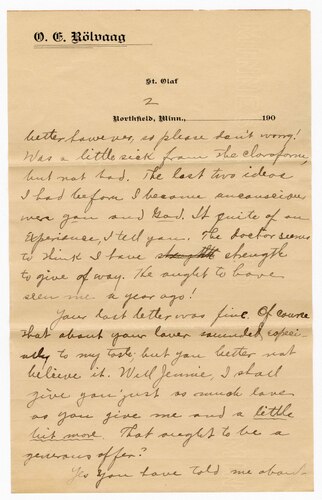 O. E. Rölvaag
St. Olaf
2
Northfield, Minn., 190
better however, so please don't worry!
Was a little sick from the cloroform,
but not bad. The last two ideas
I had before I became unconscious
were you and God. It quite of an
experience, I tell you. The doctor seems
to think I have strength
to give of way. He ought to have
seen me a year ago!
Your last letter was fine. Of course
that about your lover sounded espec-
ially to my taste, but you better not
believe it. Well Jennie, I shall
give you just as much love
as you give me and a little
bit more. That ought to be a
generous offer?
Yes you have told me about